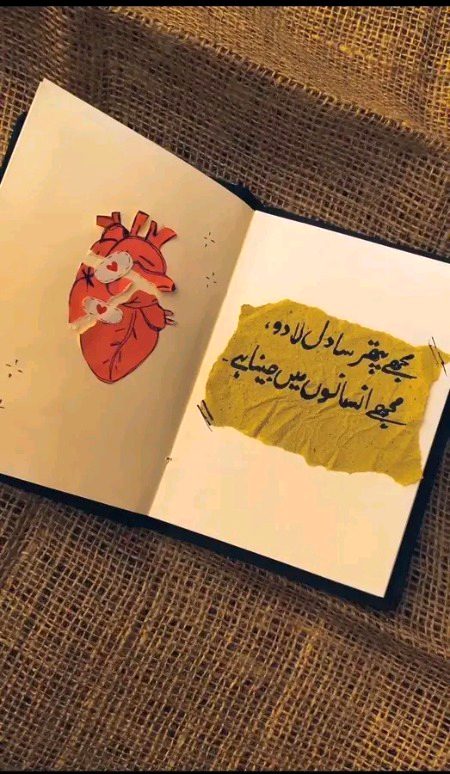 مجھے پتھر سا دل لا دو،
مجھے انسانوں میں جینا ہے۔